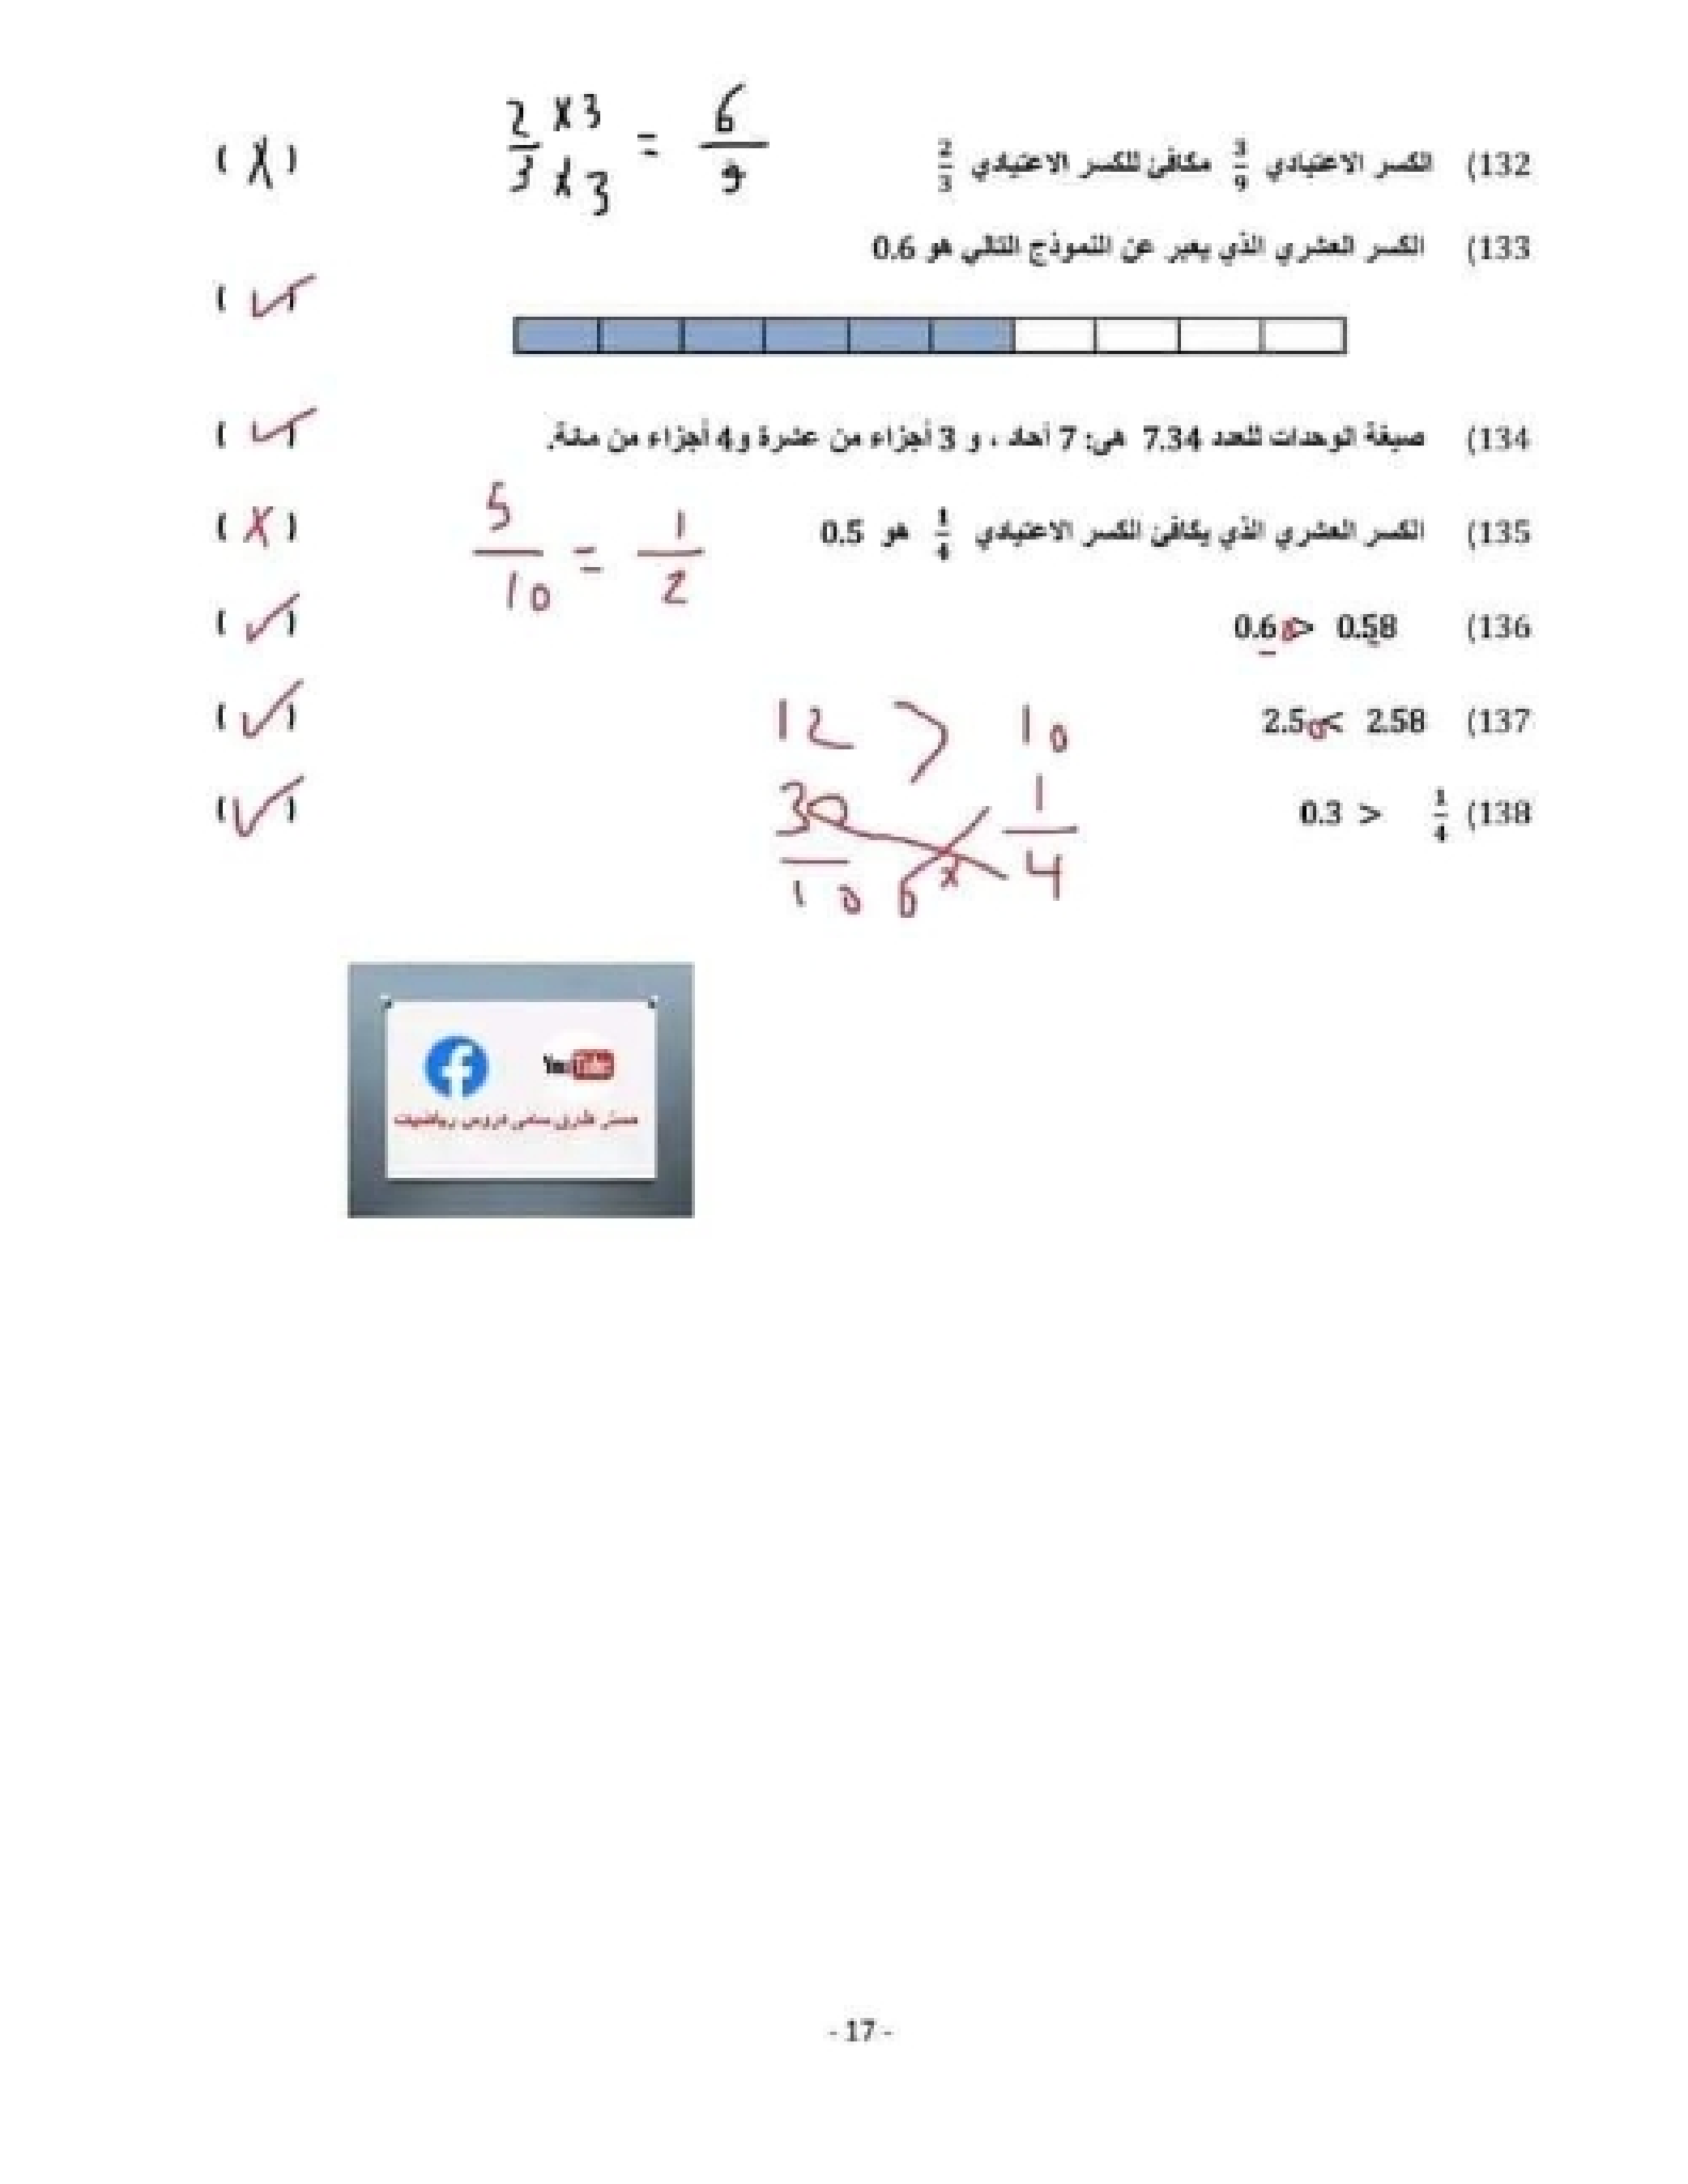 132) الكسر الاعتيادي 3/9 مكافئ للكسر الاعتيادي 2/3 (X)
2/3 ×3/×3 = 6/9
133) الكسر العشري الذي يعبر عن النموذج التالي هو 0.6
(✓)
134) صيغة الوحدات للعدد 7.34 هي: 7 أحاد ، و 3 أجزاء من عشرة و4 أجزاء من مائة. (✓)
135) الكسر العشري الذي يكافئ الكسر الاعتيادي 1/4 هو 0.5 (X)
5/10 = 1/2
136) 0.60 > 0.58 (✓)
137) 2.50 < 2.58 (✓)
12 > 10
138) 0.3 > 1/4 (✓)
3/10 × 1/4
YouTube
مستر طارق سامى دروس رياضيات
- 17 -